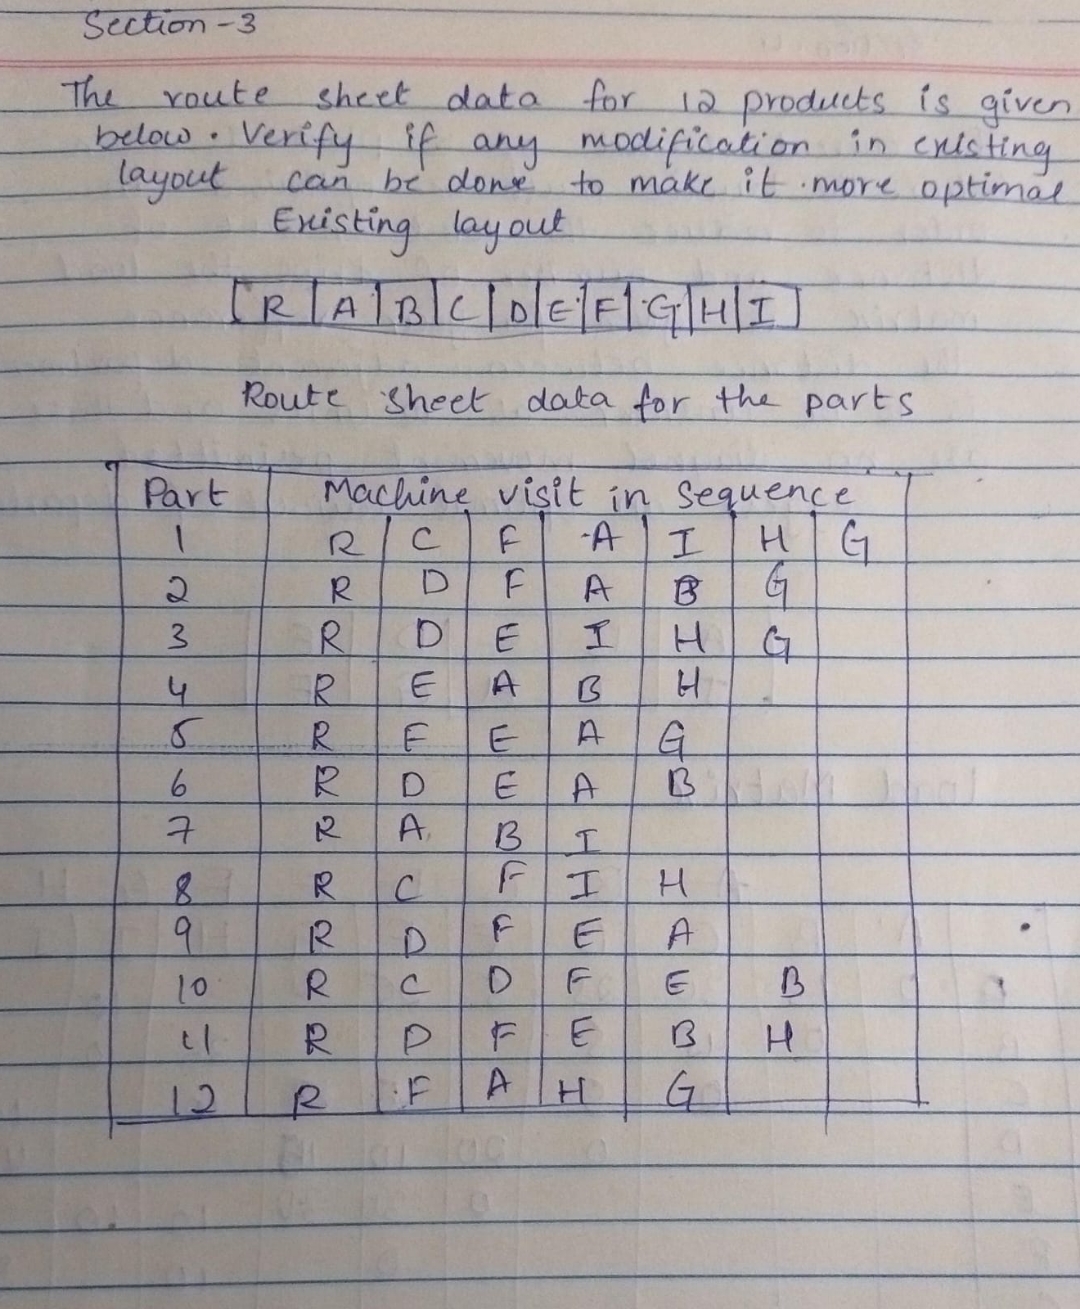 Section-3
The route sheet data for 12 products is given
below. Verify if any modification in existing
layout can be done to make it more optimal
Existing layout
R A B C D E F G H I
Route sheet data for the parts
Part Machine visit in Sequence
1 R C F A I H G
2 R D F A B G
3 R D E I H G
4 R E A B H
5 R F E A G
6 R D E A B
7 R A B I
8 R C F I H
9 R D F E A
10 R C D F E B
11 R D F E B H
12 R F A H G